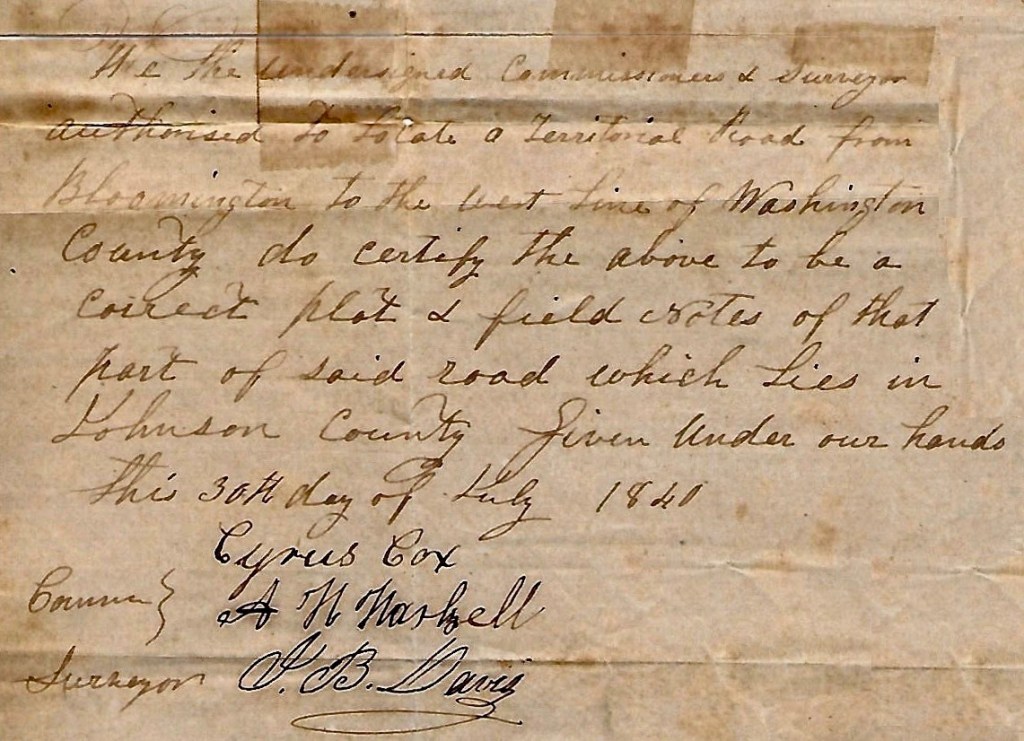 We the undersigned Commissioners & Surveyor
authorised to Locate a Territorial Road from
Bloomington to the west Line of Washington
County do certify the above to be a
correct plat & field Notes of that
part of said road which Lies in
Johnson County Given Under our hands
this 30th day of July 1840
Cyrus Cox
Comm } A H Haskell
Surveyor J. B. Davis